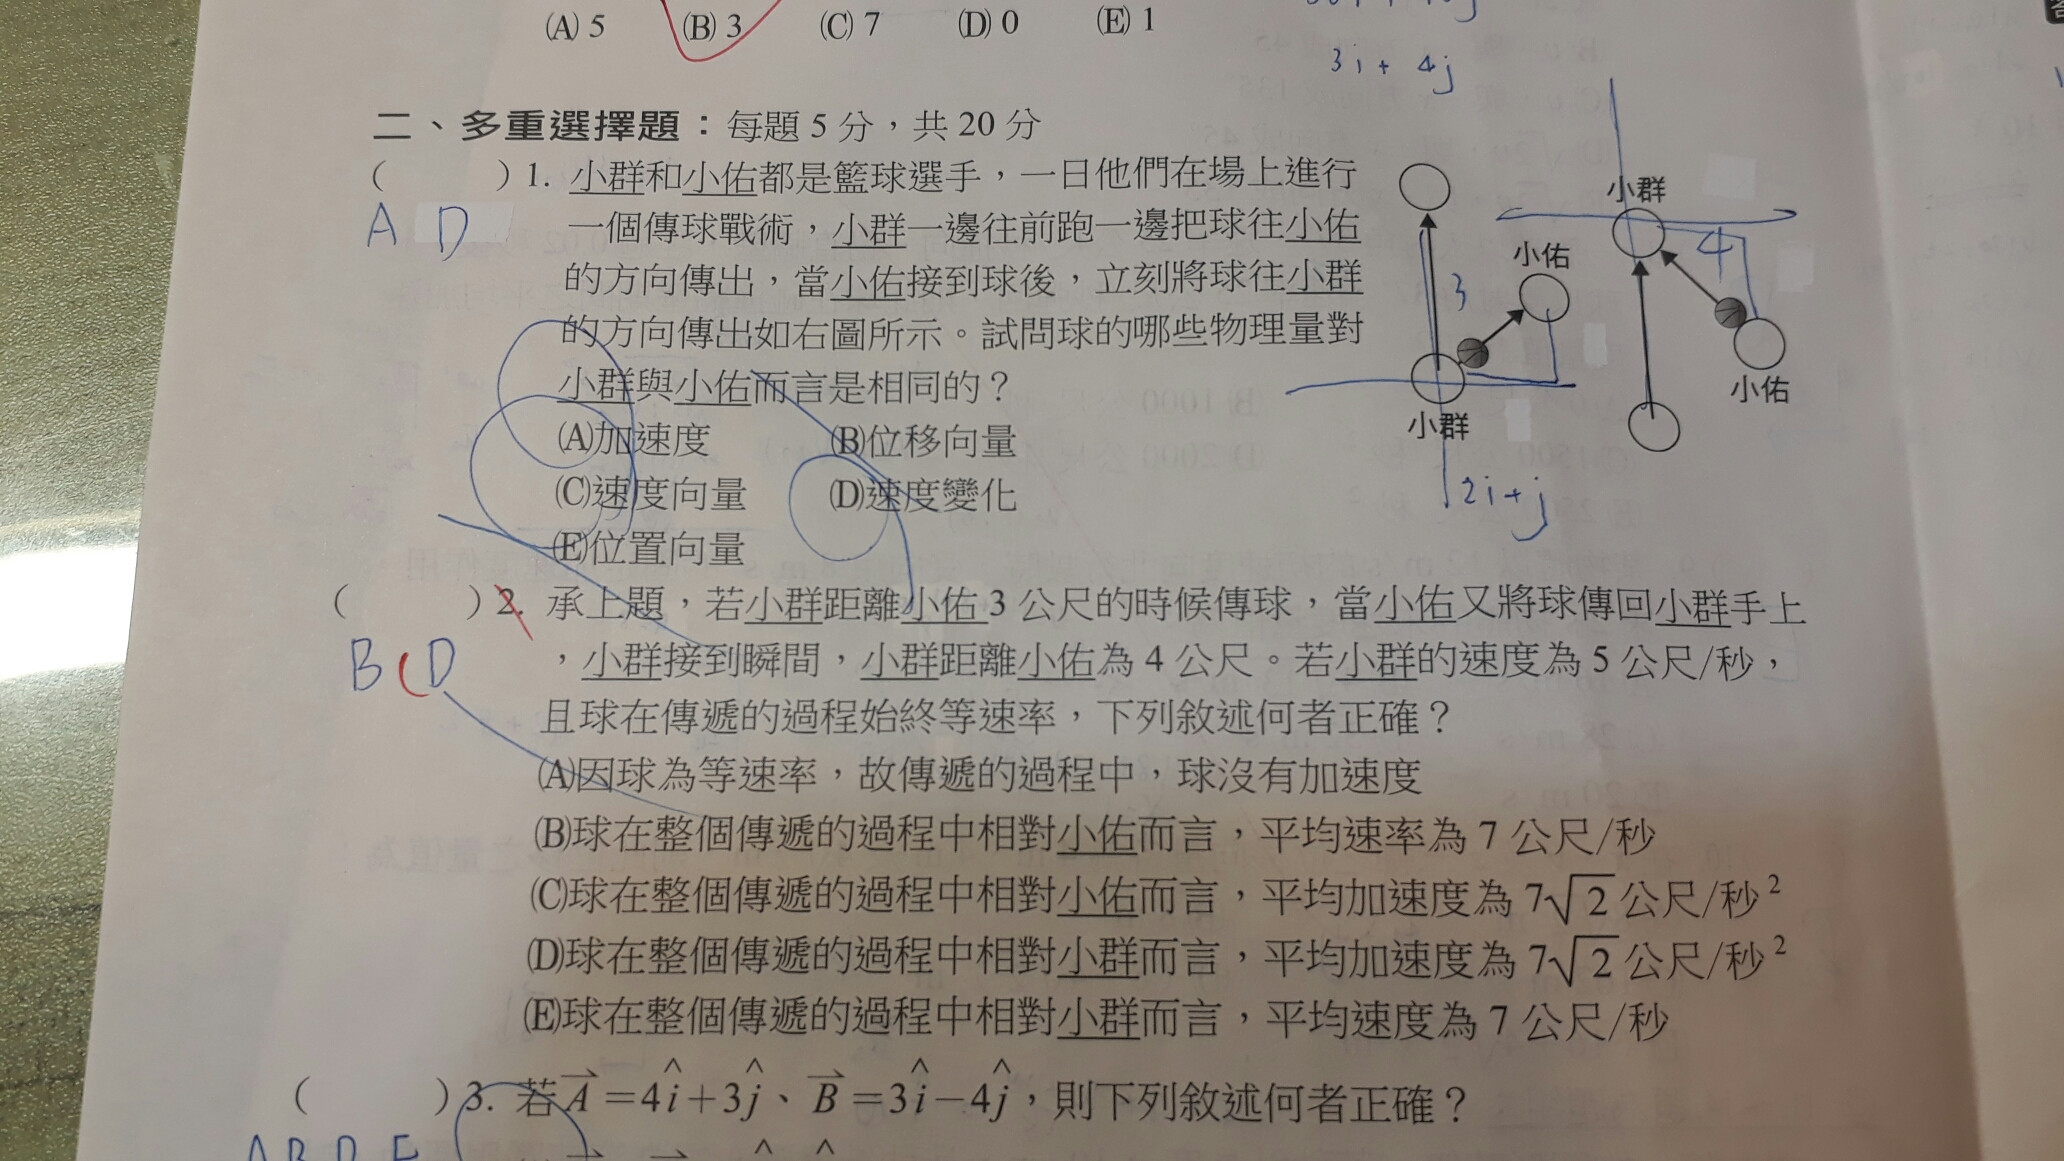 (A) 5 (B) 3 (C) 7 (D) 0 (E) 1
3i + 4j
二、多重選擇題：每題 5 分，共 20 分
( ) 1. 小群和小佑都是籃球選手，一日他們在場上進行
A D
一個傳球戰術，小群一邊往前跑一邊把球往小佑
的方向傳出，當小佑接到球後，立刻將球往小群
的方向傳出如右圖所示。試問球的哪些物理量對
小群與小佑而言是相同的？
(A)加速度 (B)位移向量
(C)速度向量 (D)速度變化
(E)位置向量
小群
小佑
3
小群
4
小佑
2i+j
( ) 2. 承上題，若小群距離小佑 3 公尺的時候傳球，當小佑又將球傳回小群手上
B C D
，小群接到瞬間，小群距離小佑為 4 公尺。若小群的速度為 5 公尺/秒，
且球在傳遞的過程始終等速率，下列敘述何者正確？
(A)因球為等速率，故傳遞的過程中，球沒有加速度
(B)球在整個傳遞的過程中相對小佑而言，平均速率為 7 公尺/秒
(C)球在整個傳遞的過程中相對小佑而言，平均加速度為 7√2 公尺/秒²
(D)球在整個傳遞的過程中相對小群而言，平均加速度為 7√2 公尺/秒²
(E)球在整個傳遞的過程中相對小群而言，平均速度為 7 公尺/秒
( ) 3. 若 A⃗ =4î+3ĵ、B⃗ =3î−4ĵ，則下列敘述何者正確？
A B D E